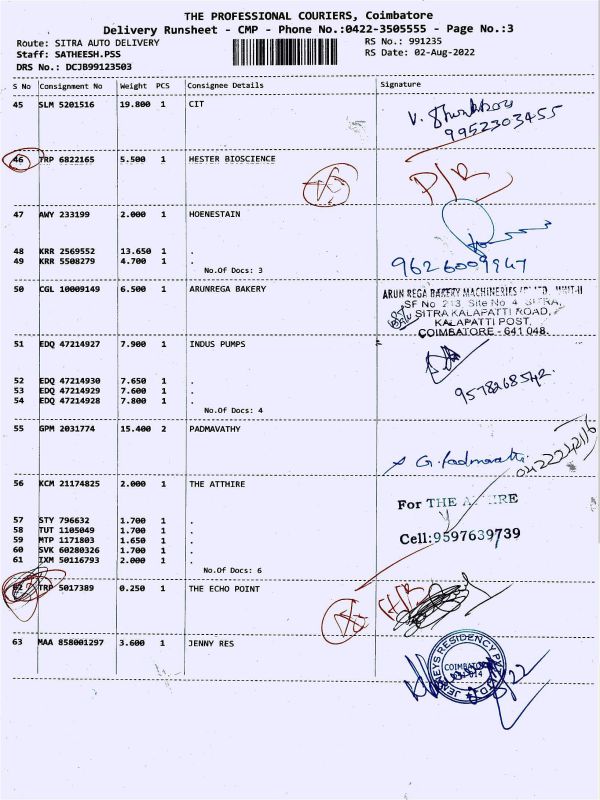 THE PROFESSIONAL COURIERS, Coimbatore
Delivery Runsheet - CMP - Phone No.:0422-3505555 - Page No.:3
Route: SITRA AUTO DELIVERY RS No.: 991235
Staff: SATHEESH.PSS RS Date: 02-Aug-2022
DRS No.: DCJB99123503
S No Consignment No Weight PCS Consignee Details Signature
45 SLM 5201516 19.800 1 CIT
9952303455
46 TRP 6822165 5.500 1 HESTER BIOSCIENCE
47 AWY 233199 2.000 1 HOENESTAIN
48 KRR 2569552 13.650 1 .
49 KRR 5508279 4.700 1 .
No.Of Docs: 3
9626009947
50 CGL 10009149 6.500 1 ARUNREGA BAKERY
ARUN REGA BAKERY MACHINERIES (P) LTD. UNIT-II
SF No 213, Site No 4 SITRA,
SITRA KALAPATTI ROAD,
KALAPATTI POST,
COIMBATORE - 641 048.
51 EDQ 47214927 7.900 1 INDUS PUMPS
52 EDQ 47214930 7.650 1 .
53 EDQ 47214929 7.600 1 .
54 EDQ 47214928 7.800 1 .
No.Of Docs: 4
9578268542.
55 GPM 2031774 15.400 2 PADMAVATHY
G. Padmavathi
56 KCM 21174825 2.000 1 THE ATTHIRE
For THE ATTHIRE
57 STY 796632 1.700 1 .
58 TUT 1105049 1.700 1 .
59 MTP 1171803 1.650 1 .
60 SVK 60280326 1.700 1 .
61 IXM 50116793 2.000 1 .
No.Of Docs: 6
Cell:9597639739
62 TRP 5017389 0.250 1 THE ECHO POINT
63 MAA 858001297 3.600 1 JENNY RES
COIMBATORE